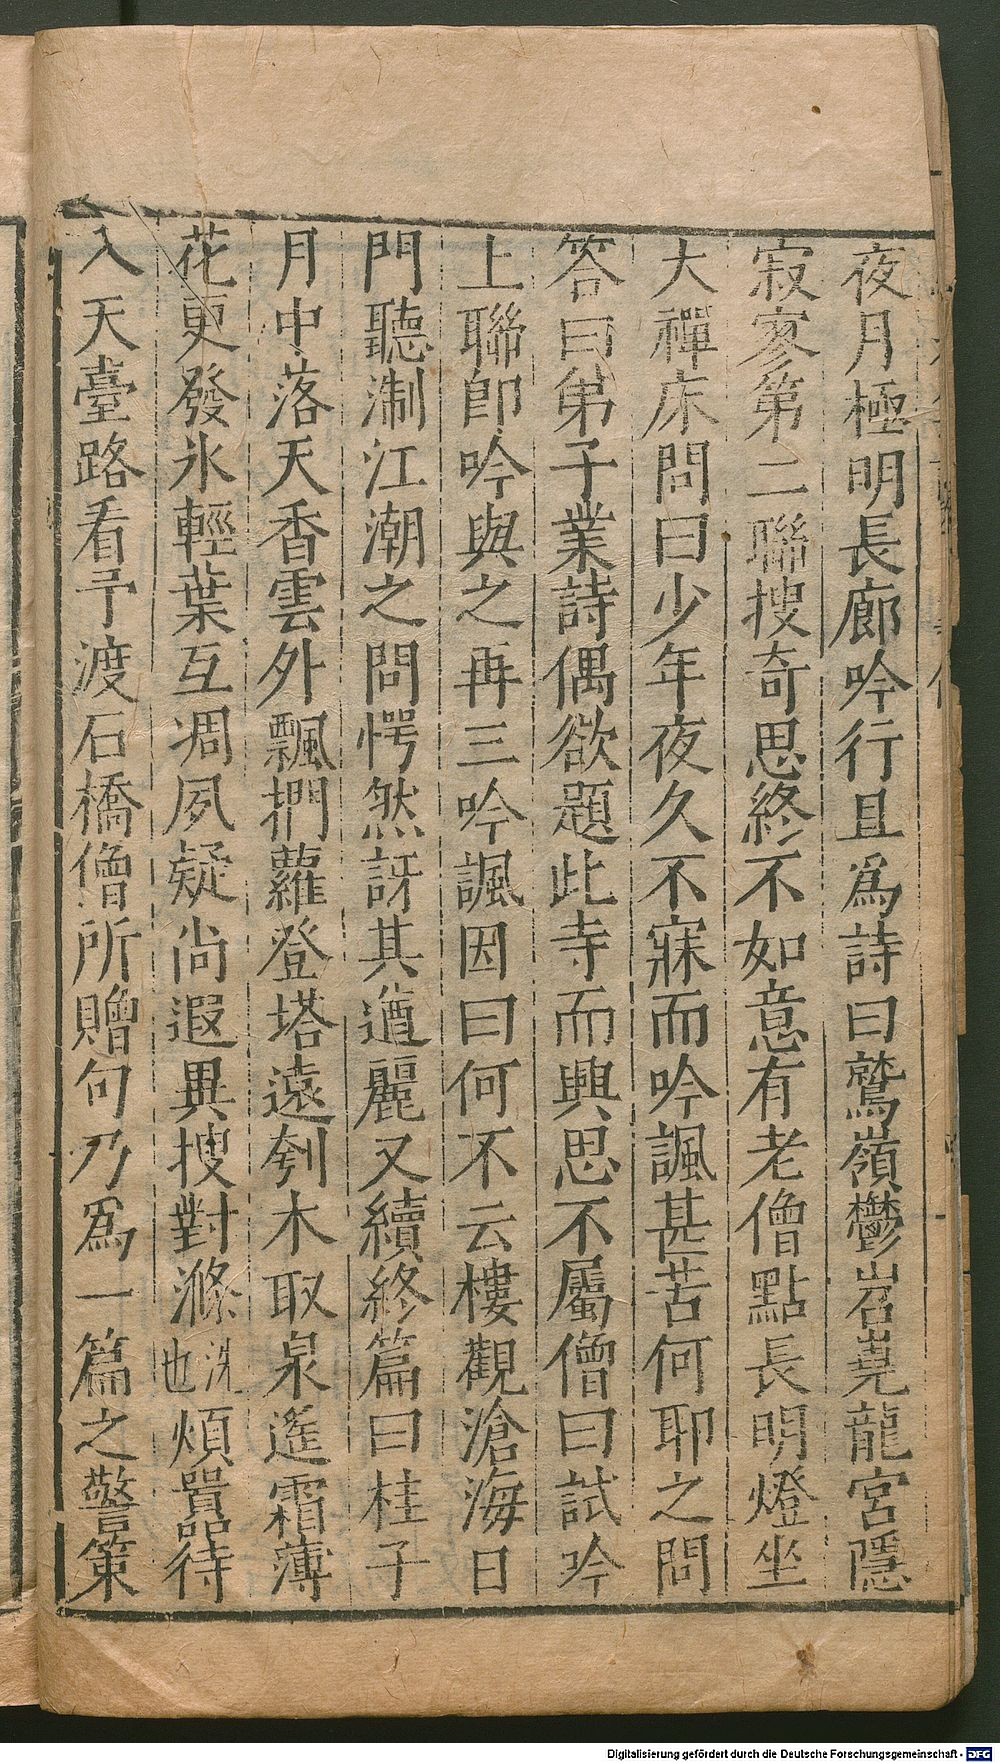 夜月極明長廊吟行且為詩曰鷲嶺鬱岧嶤龍宮隱
寂寥第二聯搜奇思終不如意有老僧點長明燈坐
大禪床問曰少年夜久不寐而吟諷甚苦何耶之問
答曰弟子業詩偶欲題此寺而興思不屬僧曰試吟
上聯即吟與之再三吟諷因曰何不云樓觀滄海日
門聽淛江潮之問愕然訝其遒麗又續終篇曰桂子
月中落天香雲外飄捫蘿登塔遠刳木取泉遙霜薄
花更發氷輕葉互凋夙疑尚遐異搜對滌洗也煩囂待
入天臺路看予渡石橋僧所贈句乃為一篇之警策
Digitalisierung gefördert durch die Deutsche Forschungsgemeinschaft - DFG